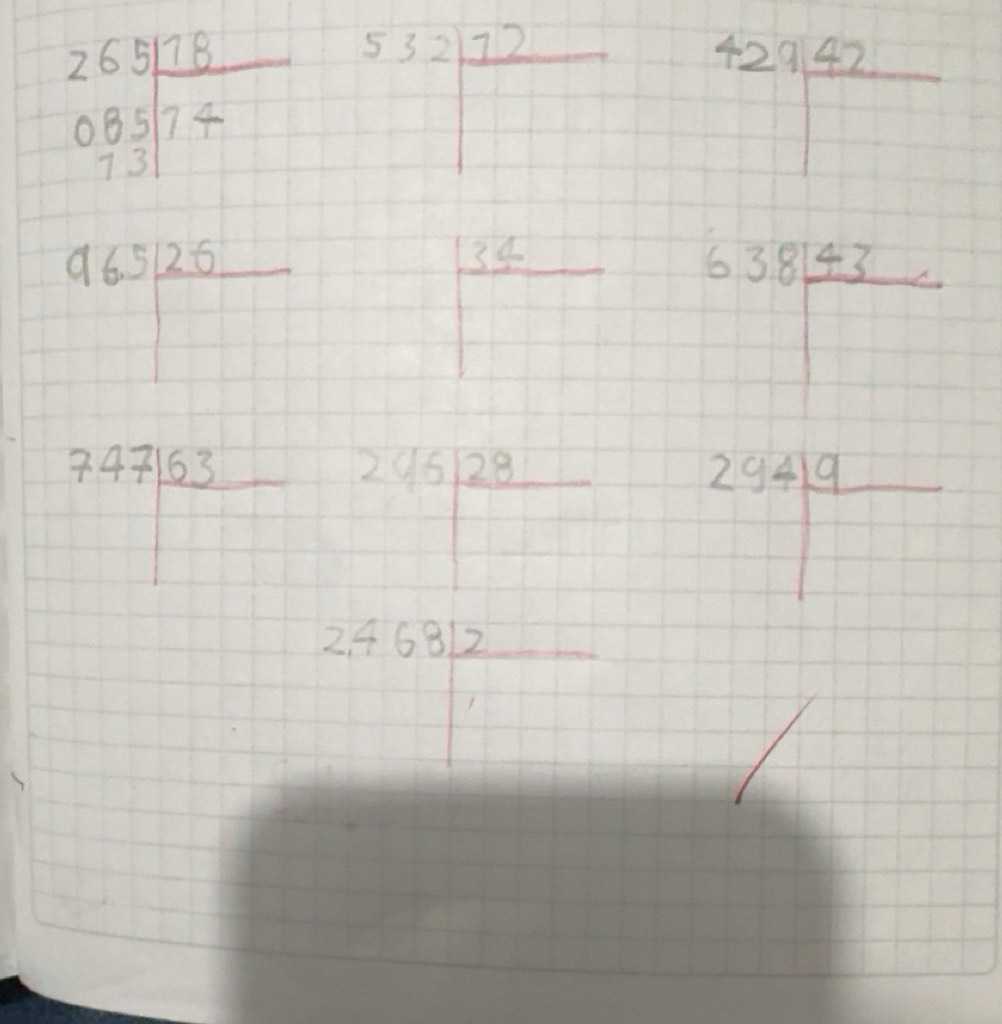 265 18 532 12 429 42
085 14
13
965 26 34 638 43
747 63 296 28 294 9
2468 2